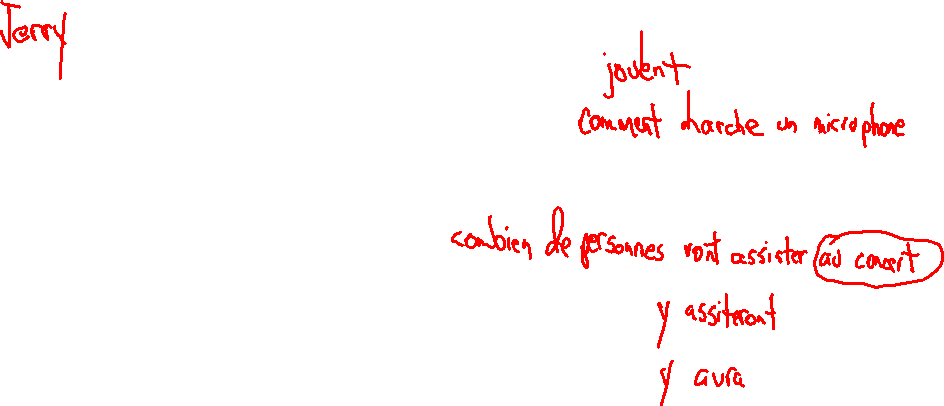 Jerry
jouent
comment marche un microphone
combien de personnes vont assister au concert
y assiteront
y aura